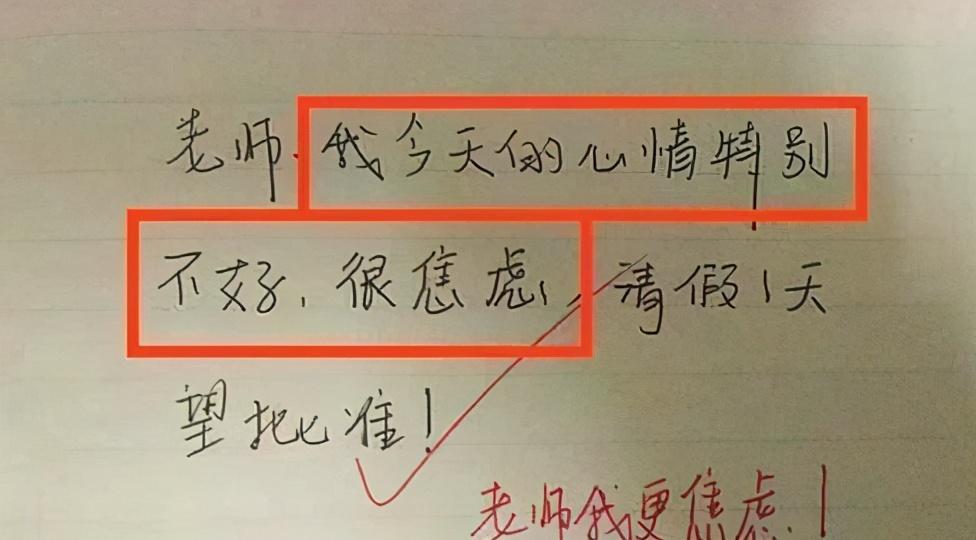 老师.我今天的心情特别
不好,很焦虑,,请假1天
望批准!
老师我更焦虑!